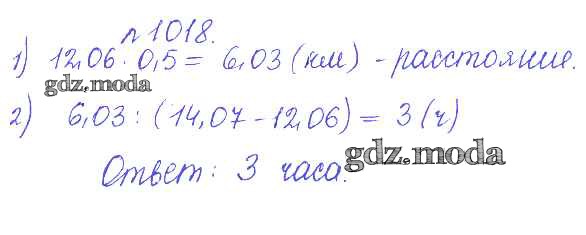 № 1018.
1) 12,06 · 0,5 = 6,03 (км) - расстояние.
gdz.moda
2) 6,03 : (14,07 - 12,06) = 3 (ч)
gdz.moda
Ответ: 3 часа.